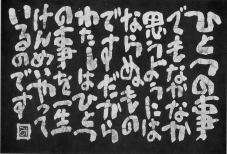 ひとつの事
でもなかなか
思うようには
ならぬもの
です だから
わたしはひとつ
の事を一生
けんめいやって
いるのです